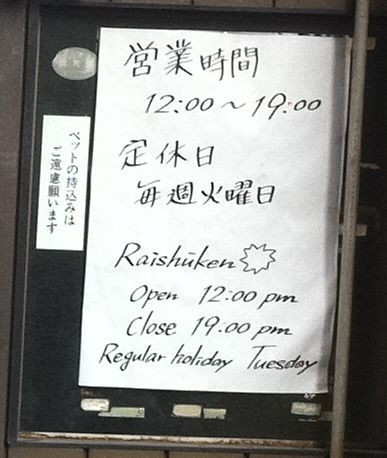 営業時間
12:00～19:00
定休日
毎週火曜日
Raishūken
Open 12:00 pm
Close 19:00 pm
Regular holiday Tuesday
ペットの持込みは
ご遠慮願います